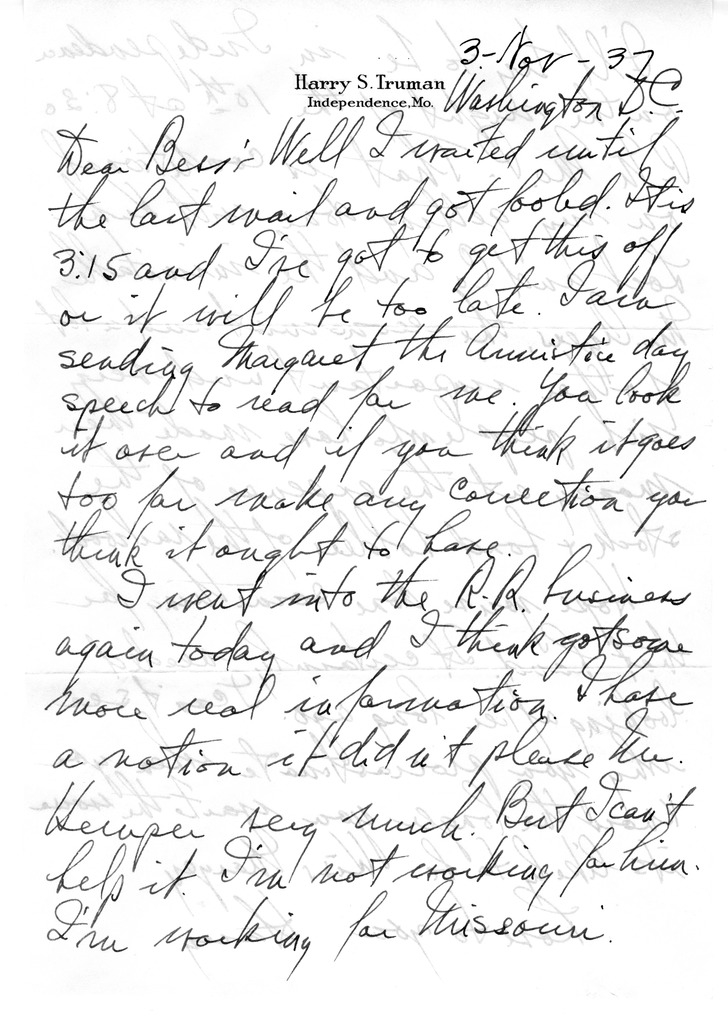 3-Nov-37
Harry S. Truman
Independence, Mo.
Washington D.C.
Dear Bess:- Well I waited until
the last mail and got fooled. It is
3:15 and I've got to get this off
or it will be too late. I am
sending Margaret the Armistice day
speech to read for me. You look
it over and if you think it goes
too far make any correction you
think it ought to have.
I went into the R.R. business
again today and I think got some
more real information. I have
a notion it didn't please Mr.
Kemper very much. But I can't
help it. I'm not working for him.
I'm working for Missouri.